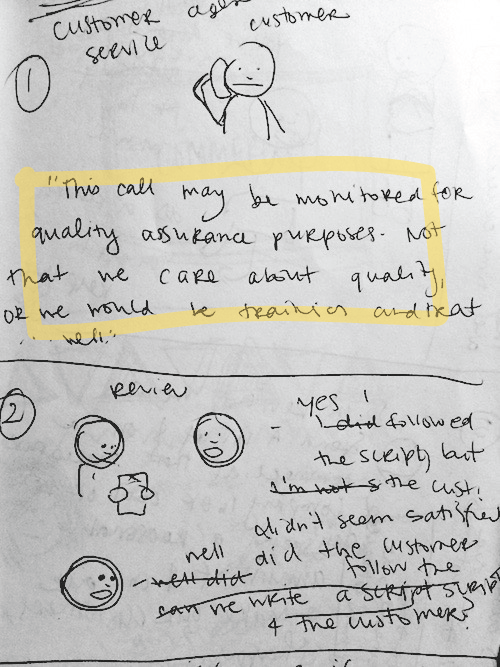 customer agent
customer
service
1
"This call may be monitored for
quality assurance purposes. Not
that we care about quality,
or we would be training and treat
well."
2
review
- yes I
I did followed
the script, but
I'm not s the cust.
didn't seem satisfied
well did the customer
- well did follow the
can we write a script script
4 the customer?